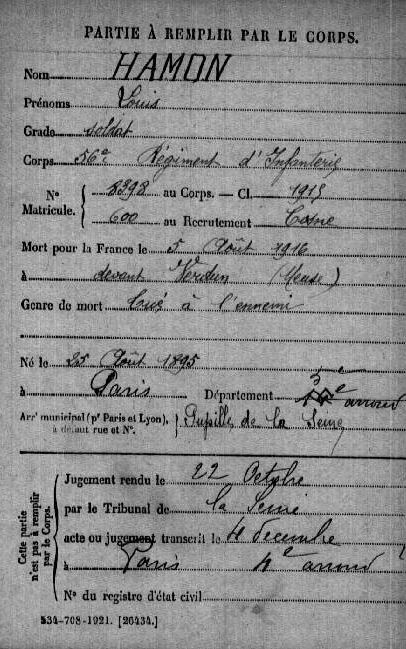 PARTIE À REMPLIR PAR LE CORPS.
Nom HAMON
Prénoms Louis
Grade soldat
Corps 56e Régiment d'Infanterie
N° Matricule. { 8398 au Corps. — Cl. 1915
600 au Recrutement Cosne
Mort pour la France le 5 Août 1916
à devant Verdun (Meuse)
Genre de mort tué à l'ennemi
Né le 25 Août 1895
à Paris Département arrond
Arrt municipal (pr Paris et Lyon), à défaut rue et N°. } Pupille de la Seine
Cette partie n'est pas à remplir par le Corps.
Jugement rendu le 22 Octobre
par le Tribunal de la Seine
acte ou jugement transcrit le 4 decembre
à Paris 4e arrond
N° du registre d'état civil
534-708-1921. [26434.]